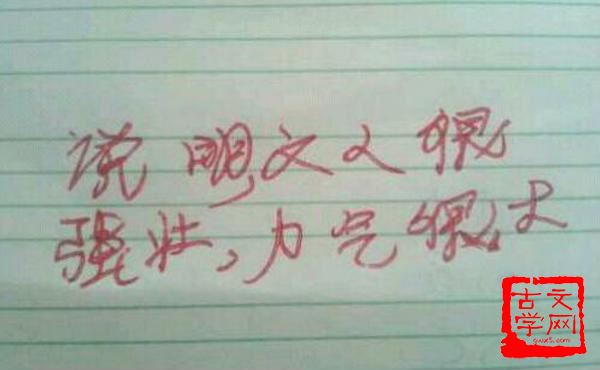 说明文人很
强壮，力气很大
古文
学网
gwx5.com